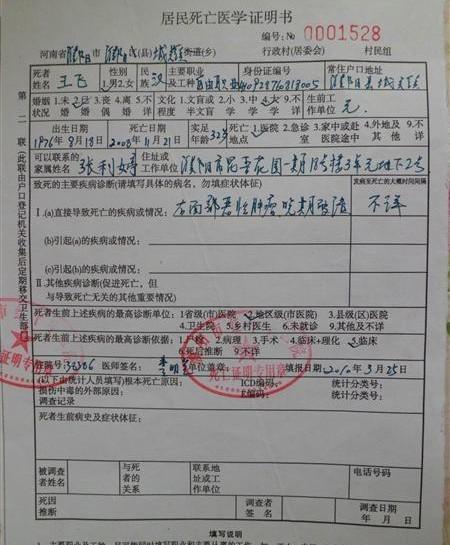 居民死亡医学证明书
编号:No 0001528
河南省濮阳市濮阳(县)城关街道(乡) 行政村(居委会) 村民组
死者姓名 王飞 性别 1.男2.女 民族 汉 主要职业及工种 身份证编号 常住户口地址 濮阳县城关镇
婚姻状况 1.未婚 2.已婚 3.丧偶 4.离婚 5.不详 文化程度 1.文盲或半文盲 2.小学 3.中学 4.大学 9.不详 生前工作单位 无
出生日期 1976年9月18日 死亡日期 2008年11月21日 实足年龄 32岁 死亡地点 1.医院 2.急诊室 3.家中或赴医院途中 4.外地及其他 9.不详
可以联系的家属姓名 张利婷 住址或工作单位
致死的主要疾病诊断(请填写具体的病名,勿填症状体征) 发病至死亡的大概时间间隔
Ⅰ.(a)直接导致死亡的疾病或情况: 不详
(b)引起(a)的疾病或情况:
(c)引起(b)的疾病或情况:
Ⅱ.其他疾病诊断(促进死亡,但
与导致死亡无关的其他重要情况)
死者生前上述疾病的最高诊断单位:1省级(市)医院 2地区级(市)医院 3.县级(区)医院
4.卫生院 5.乡村医生 6.未就诊 9.其他及不详
死者生前上述疾病的最高诊断依据: 2.病理 3.手术 4.临床+理化 5.临床
6.死后推断 9.不详
住院号 医师签名: 单位盖章: 填报日期 2010年3月25日
(以下由统计人员填写)根本死亡原因: ICD编码: 统计分类号:
损伤中毒的外部原因: E编码: 统计分类号:
调查记录
死者生前病史及症状体征:
被调查者姓名 与死者的关系 联系地址或工作单位 电话号码
死因推断 调查者签名 调查日期 年 月 日
填写说明
第二联(此联由户口登记机关收集后定期移交卫生部门)
死亡证明专用章